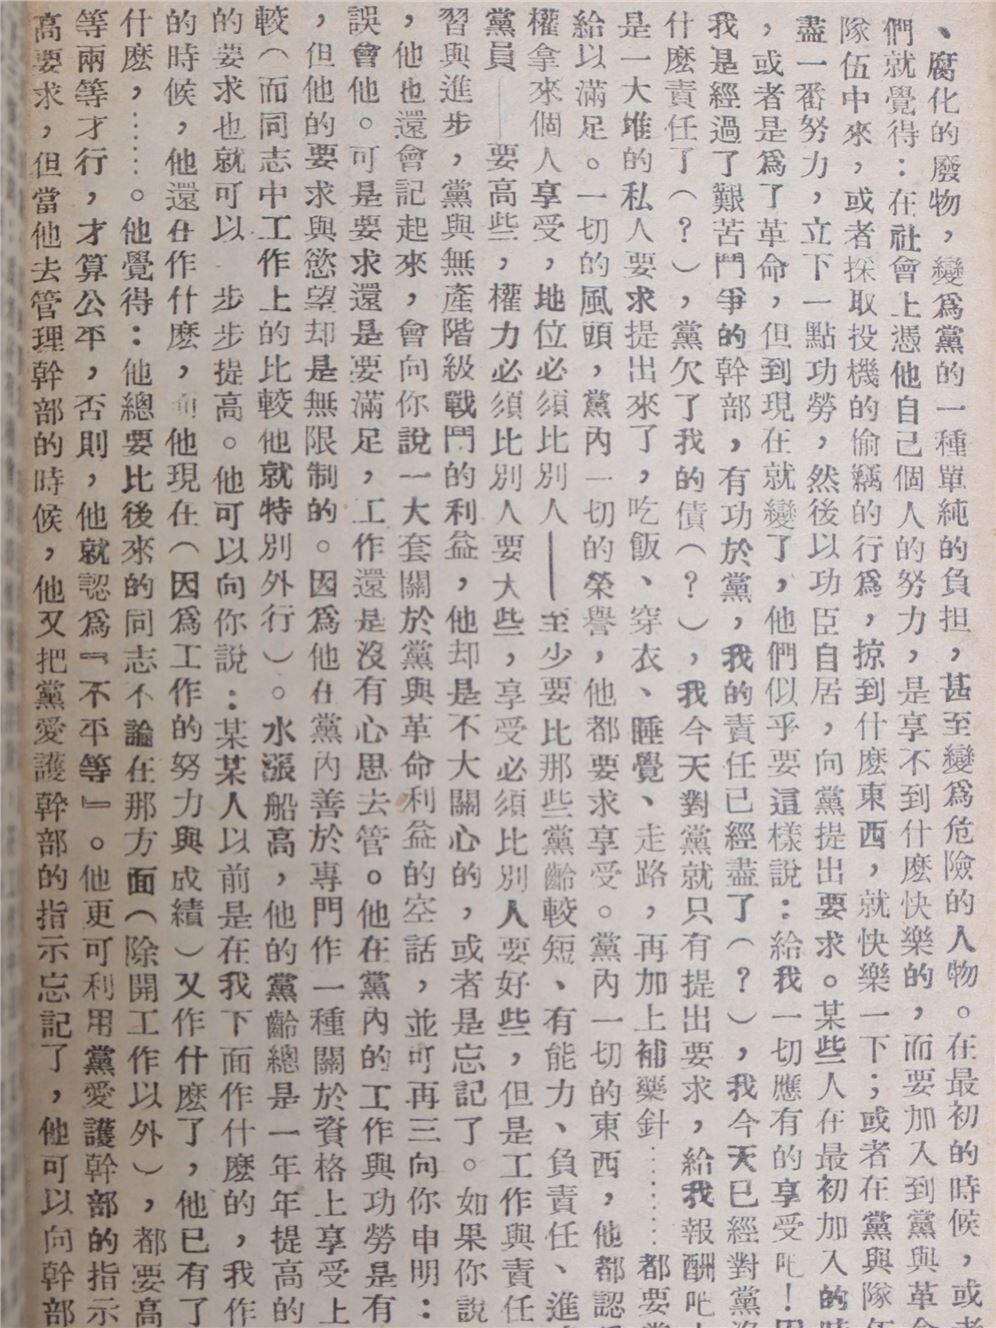 、腐化的廢物，變爲黨的一種單純的負担，甚至變爲危險的人物。在最初的時候，或者
們就覺得：在社會上憑他自己個人的努力，是享不到什麼快樂的，而要加入到黨與革
隊伍中來，或者採取投機的偷竊的行爲，掠到什麼東西，就快樂一下；或者在黨與隊
盡一番努力，立下一點功勞，然後以功臣自居，向黨提出要求。某些人在最初加入的時
，或者是爲了革命，但到現在就變了，他們似乎要這樣說：給我一切應有的享受吧！因
我是經過了艱苦鬥爭的幹部，有功於黨，我的責任已經盡了（？），我今天已經對黨
什麼責任了（？），黨欠了我的債（？），我今天對黨就只有提出要求，給我報酬吧
是一大堆的私人要求提出來了，吃飯、穿衣、睡覺、走路，再加上補藥針………都要
給以滿足。一切的風頭，黨內一切的榮譽，他都要求享受。黨內一切的東西，他都認
權拿來個人享受，地位必須比別人——至少要比那些黨齡較短、有能力、負責任、進
黨員——要高些，權力必須比別人要大些，享受必須比別人要好些，但是工作與責任
習與進步，黨與無產階級戰鬥的利益，他却是不大關心的，或者是忘記了。如果你說
，他也還會記起來，會向你說一大套關於黨與革命利益的空話，並可再三向你申明：
誤會他。可是要求還是要滿足，工作還是沒有心思去管。他在黨內的工作與功勞是有
，但他的要求與慾望却是無限制的。因爲他在黨內善於專門作一種關於資格上享受上
較（而同志中工作上的比較他就特別外行）。水漲船高，他的黨齡總是一年年提高的
的要求也就可以 步步提高。他可以向你說：某某人以前是在我下面作什麼的，我作
的時候，他還在作什麼，而他現在（因爲工作的努力與成績）又作什麼了，他已有了
什麼，……。他覺得：他總要比後來的同志不論在那方面（除開工作以外），都要高
等兩等才行，才算公平，否則，他就認爲『不平等』。他更可利用黨愛護幹部的指示
高要求，但當他去管理幹部的時候，他又把黨愛護幹部的指示忘記了，他可以向幹部